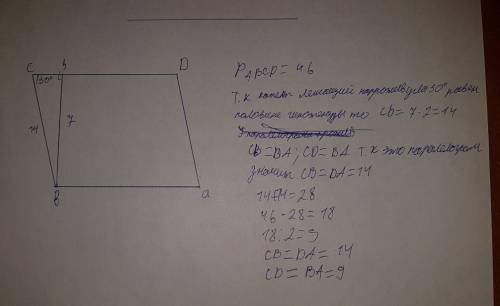 C
h
D
30°
14
7
B
a
P ABCD = 46
Т.к катет лежащий напротив угла 30° равен
половине гипотенузы то CB = 7·2=14
CB = BA; CD = BA т.к это параллелограм
значит CB = DA = 14
14+14 = 28
46 - 28 = 18
18:2 = 9
CB = DA = 14
CD = BA = 9